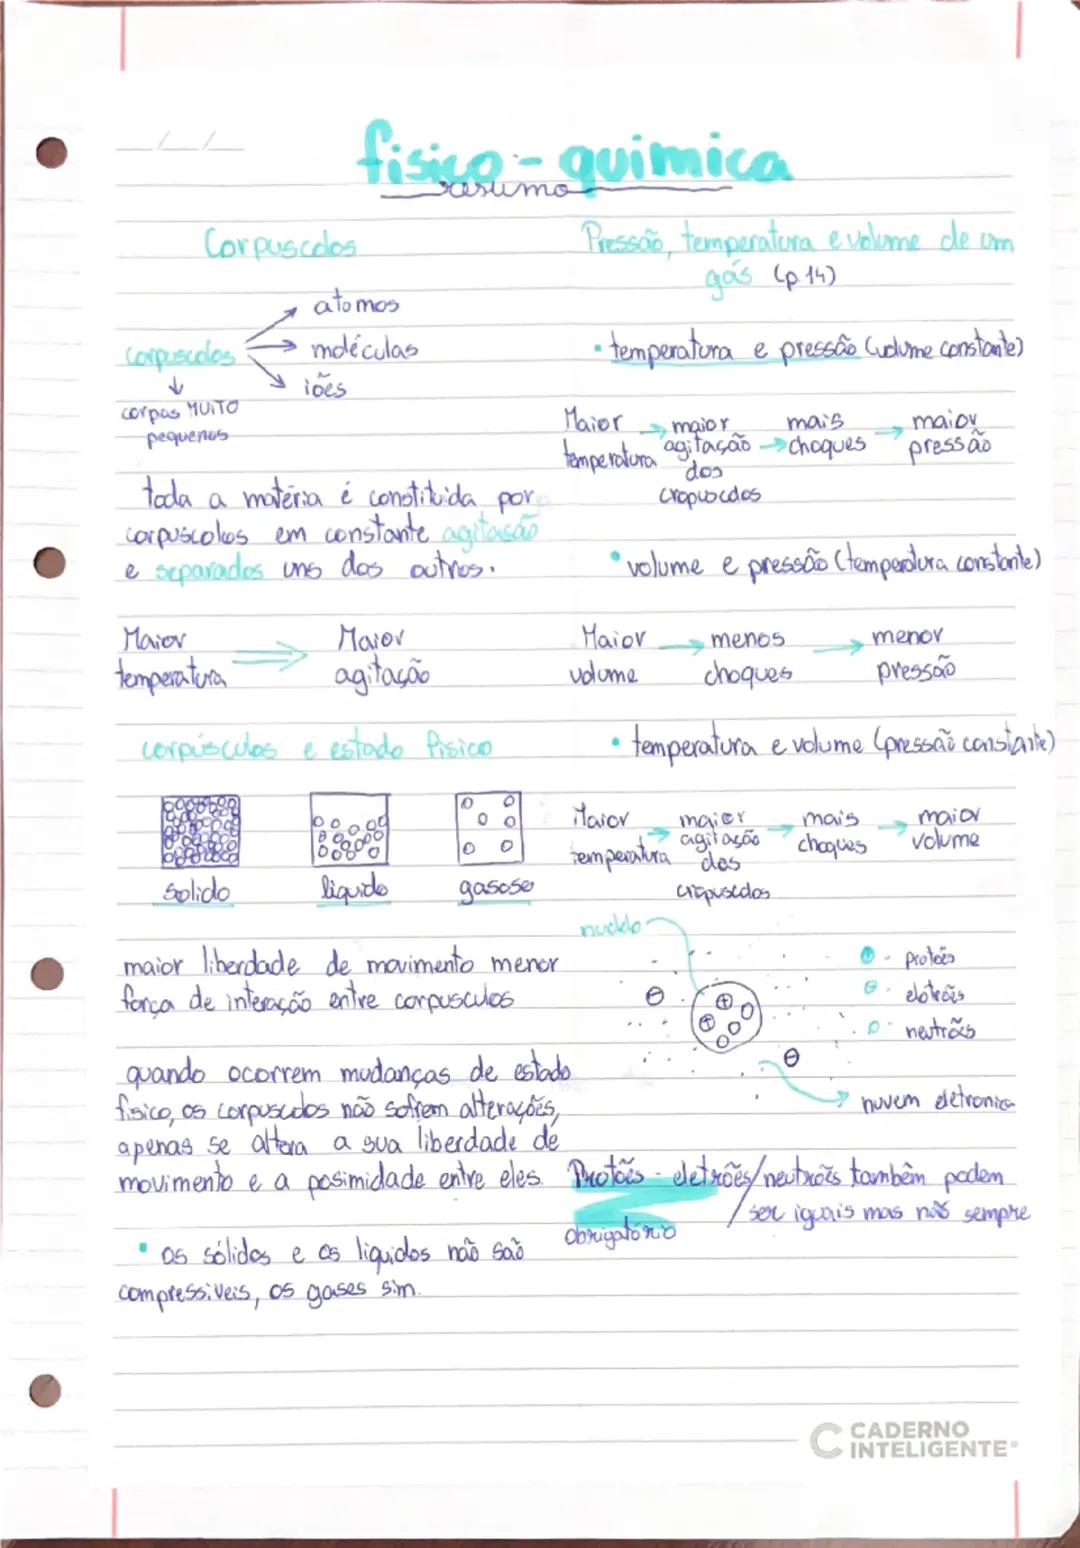 fisico-quimica
resumo
Corpuscolos
corpuscolos
atomos
moléculas
iões
corpos MUITO
pequenos
toda a matéria é constituida por
corpuscolos em constante agitação
e separados uns dos outros.
Maior
temperatura
Maior
agitação
corpúsculos e estado fisico
solido
liquido
gasoso
maior liberdade de movimento menor
força de interação entre corpusculos
quando ocorrem mudanças de estado
fisico, os corpuscolos não sofrem alterações,
apenas se altera a sua liberdade de
movimento e a posimidade entre eles.
• os sólidos e os liquidos não são
compressiveis, os gases sim.
Pressão, temperatura e volume de um
gás (p.14)
• temperatura e pressão (volume constante)
Maior → maior mais → maior
temperatura agitação → choques pressão
dos
cropuscolos
• volume e pressão (temperatura constante)
Maior → menos → menor
volume choques pressão
• temperatura e volume (pressão constante)
Maior → maior → mais → maior
temperatura agitação choques volume
dos
cropuscolos
nucleo
- protões
- eletrões
- neutrões
nuvem eletronica
Protões - eletrões/neutrões também podem
obrigatório / ser iguais mas não sempre
CADERNO
INTELIGENTE